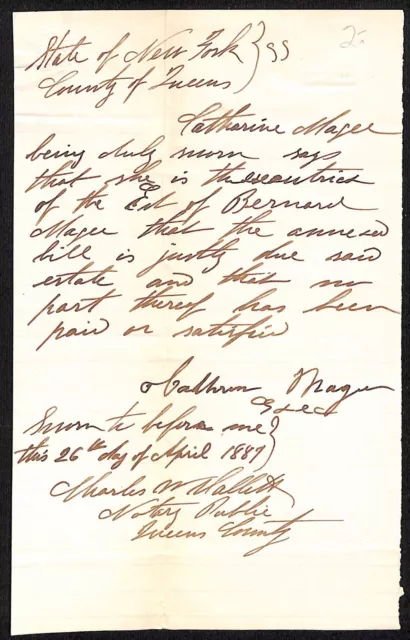 2.
State of New York } SS
County of Queens }
Catharine Magee
being duly sworn says
that she is the executrix
of the Est of Bernard
Magee that the annexed
bill is justly due said
estate and that no
part thereof has been
paid or satisfied
Cathren Magee
Exec
Sworn to before me }
this 26th day of April 1887 }
Charles W Hallett
Notary Public
Queens County